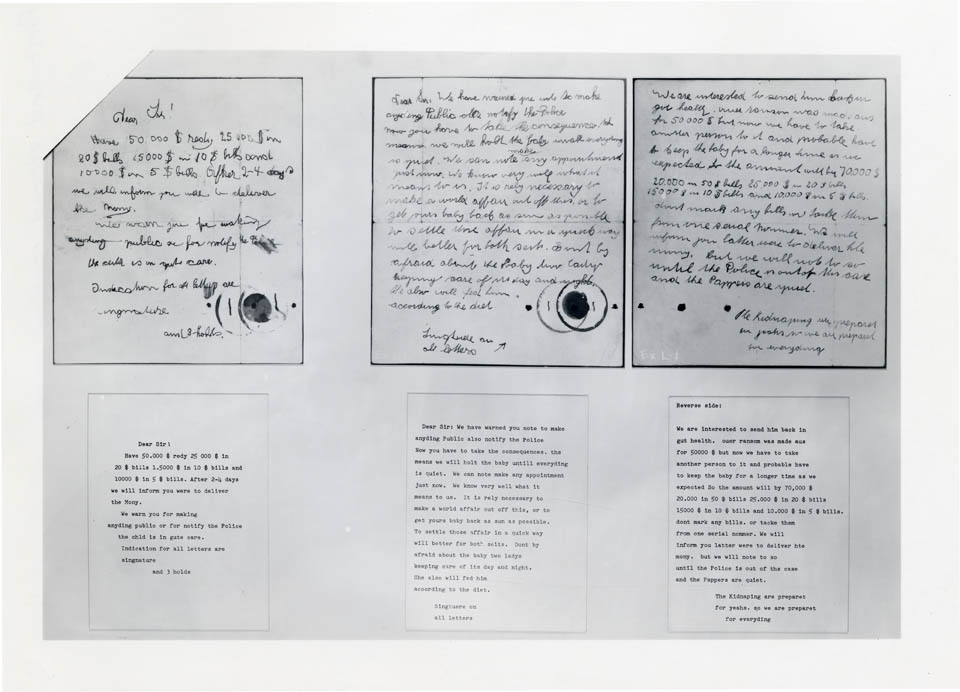 Dear Sir!
Have 50.000 $ redy 25 000 $ in
20 $ bills 15000 $ in 10 $ bills and
10000 $ in 5 $ bills After 2-4 days
we will inform you were to deliver
the Mony.
We warn you for making
anyding public or for notify the Police
the child is in gute care.
Indication for all letters are
singnature
and 3 holds.
Dear Sir: We have warned you note to make
anyding Public also notify the Police
now you have to take the consequences. ths
means we will holt the baby untill everyding
is quiet. We can note make any appointment
just now. We know very well what it
means to us. It is rely necessary to
make a world affair out off this, or to
get your baby back as sun as possible
to settle those affair in a quick way
will better for both seits. Dont by
afraid about the baby two ladys
keeping care of its day and night.
She also will fed him
according to the diet
Singtuere on
all letters
Ex L-1
We are interested to send him back in
gut health. ouer ransom was made aus
for 50000 $ but now we have to take
another person to it and probable have
to keep the baby for a longer time as we
expected So the amount will by 70,000 $
20.000 in 50 $ bills 25.000 $ in 20 $ bills
15000 $ in 10 $ bills and 10.000 $ in 5 $ bills.
dont mark any bills, or tacke them
from one serial nommer. We will
inform you latter were to deliver hte
mony. but we will note to so
until the Police is out of ths case
and the Pappers are quiet.
The Kidnaping are preparet
for yeahs. so we are preparet
for everyding
Ex L-1
Dear Sir!
Have 50.000 $ redy 25 000 $ in
20 $ bills 1.5000 $ in 10 $ bills and
10000 $ in 5 $ bills. After 2-4 days
we will inform you were to deliver
the Mony.
We warn you for making
anyding public or for notify the Police
the chld is in gute care.
Indication for all letters are
singnature
and 3 holds
Dear Sir: We have warned you note to make
anyding Public also notify the Police
Now you have to take the consequences. ths
means we will holt the baby untill everyding
is quiet. We can note make any appointment
just now. We know very well what it
means to us. It is rely necessary to
make a world affair out off this, or to
get yours baby back as sun as possible.
To settle those affair in a quick way
will better for both seits. Dont by
afraid about the baby two ladys
keeping care of its day and night.
She also will fed him
according to the diet.
Singtuere on
all letters
Reverse side:
We are interested to send him back in
gut health. ouer ransom was made aus
for 50000 $ but now we have to take
another person to it and probable have
to keep the baby for a longer time as we
expected So the amount will by 70,000 $
20.000 in 50 $ bills 25.000 $ in 20 $ bills
15000 $ in 10 $ bills and 10.000 in 5 $ bills.
dont mark any bills. or tacke them
from one serial nommer. We will
inform you latter were to deliver hte
mony. but we will note to so
until the Police is out of ths case
and the Pappers are quiet.
The Kidnaping are preparet
for yeahs. so we are preparet
for everyding